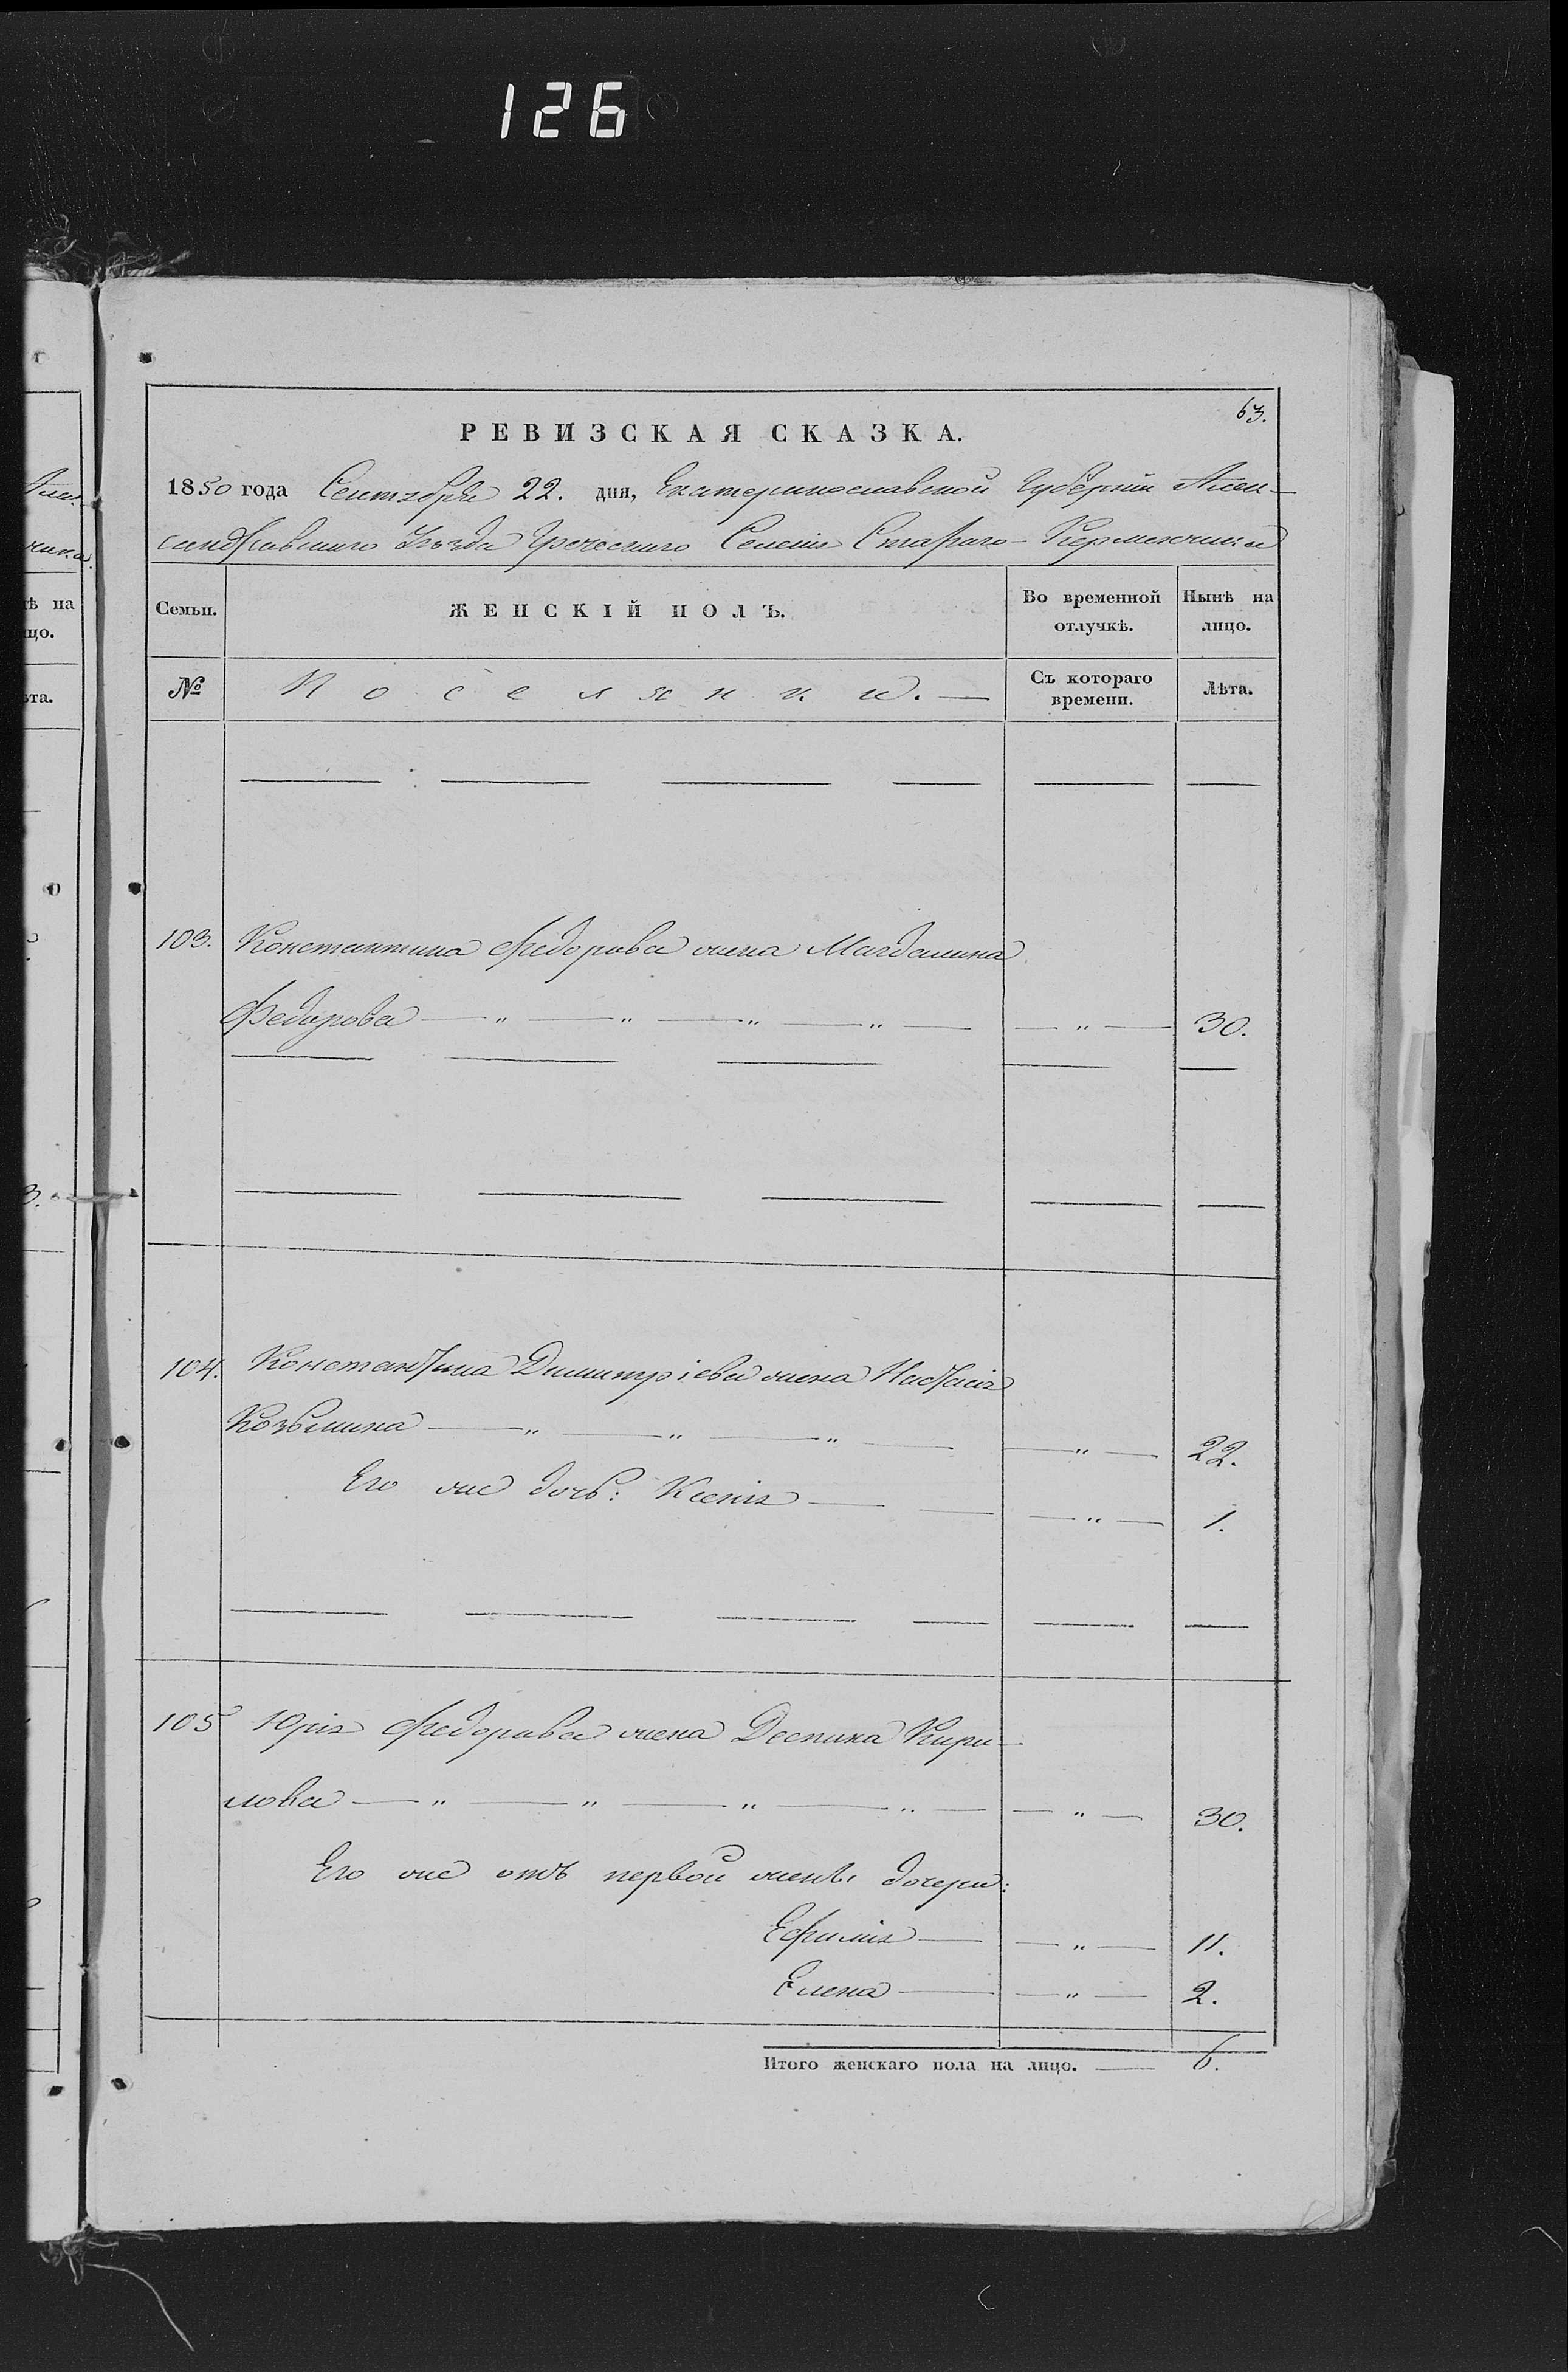 126
63.
РЕВИЗСКАЯ СКАЗКА.
1850 года Сентября 22. дня, Екатеринославской Губерніи Алек-
сандровскаго Уѣзда Греческаго Селенія Стараго-Керменчика
Семьи.
ЖЕНСКІЙ ПОЛЪ.
Во временной отлучкѣ.
Нынѣ на лицо.
№
Поселянки.
Съ котораго времени.
Лѣта.
103. Константина Федорова жена Магдалина
Федорова — " — " — " — " — — " — 30.
104. Константина Димитріева жена Настасія
Козьмина — " — " — " — — " — 22.
Его же дочь: Ксенія — — " — 1.
105 Юрія Федорова жена Деспина Кири-
лова — " — " — " — " — — " — 30.
Его же отъ первой жены дочери:
Ефимія — — " — 11.
Елена — — " — 2.
Итого женскаго пола на лицо. — 6.